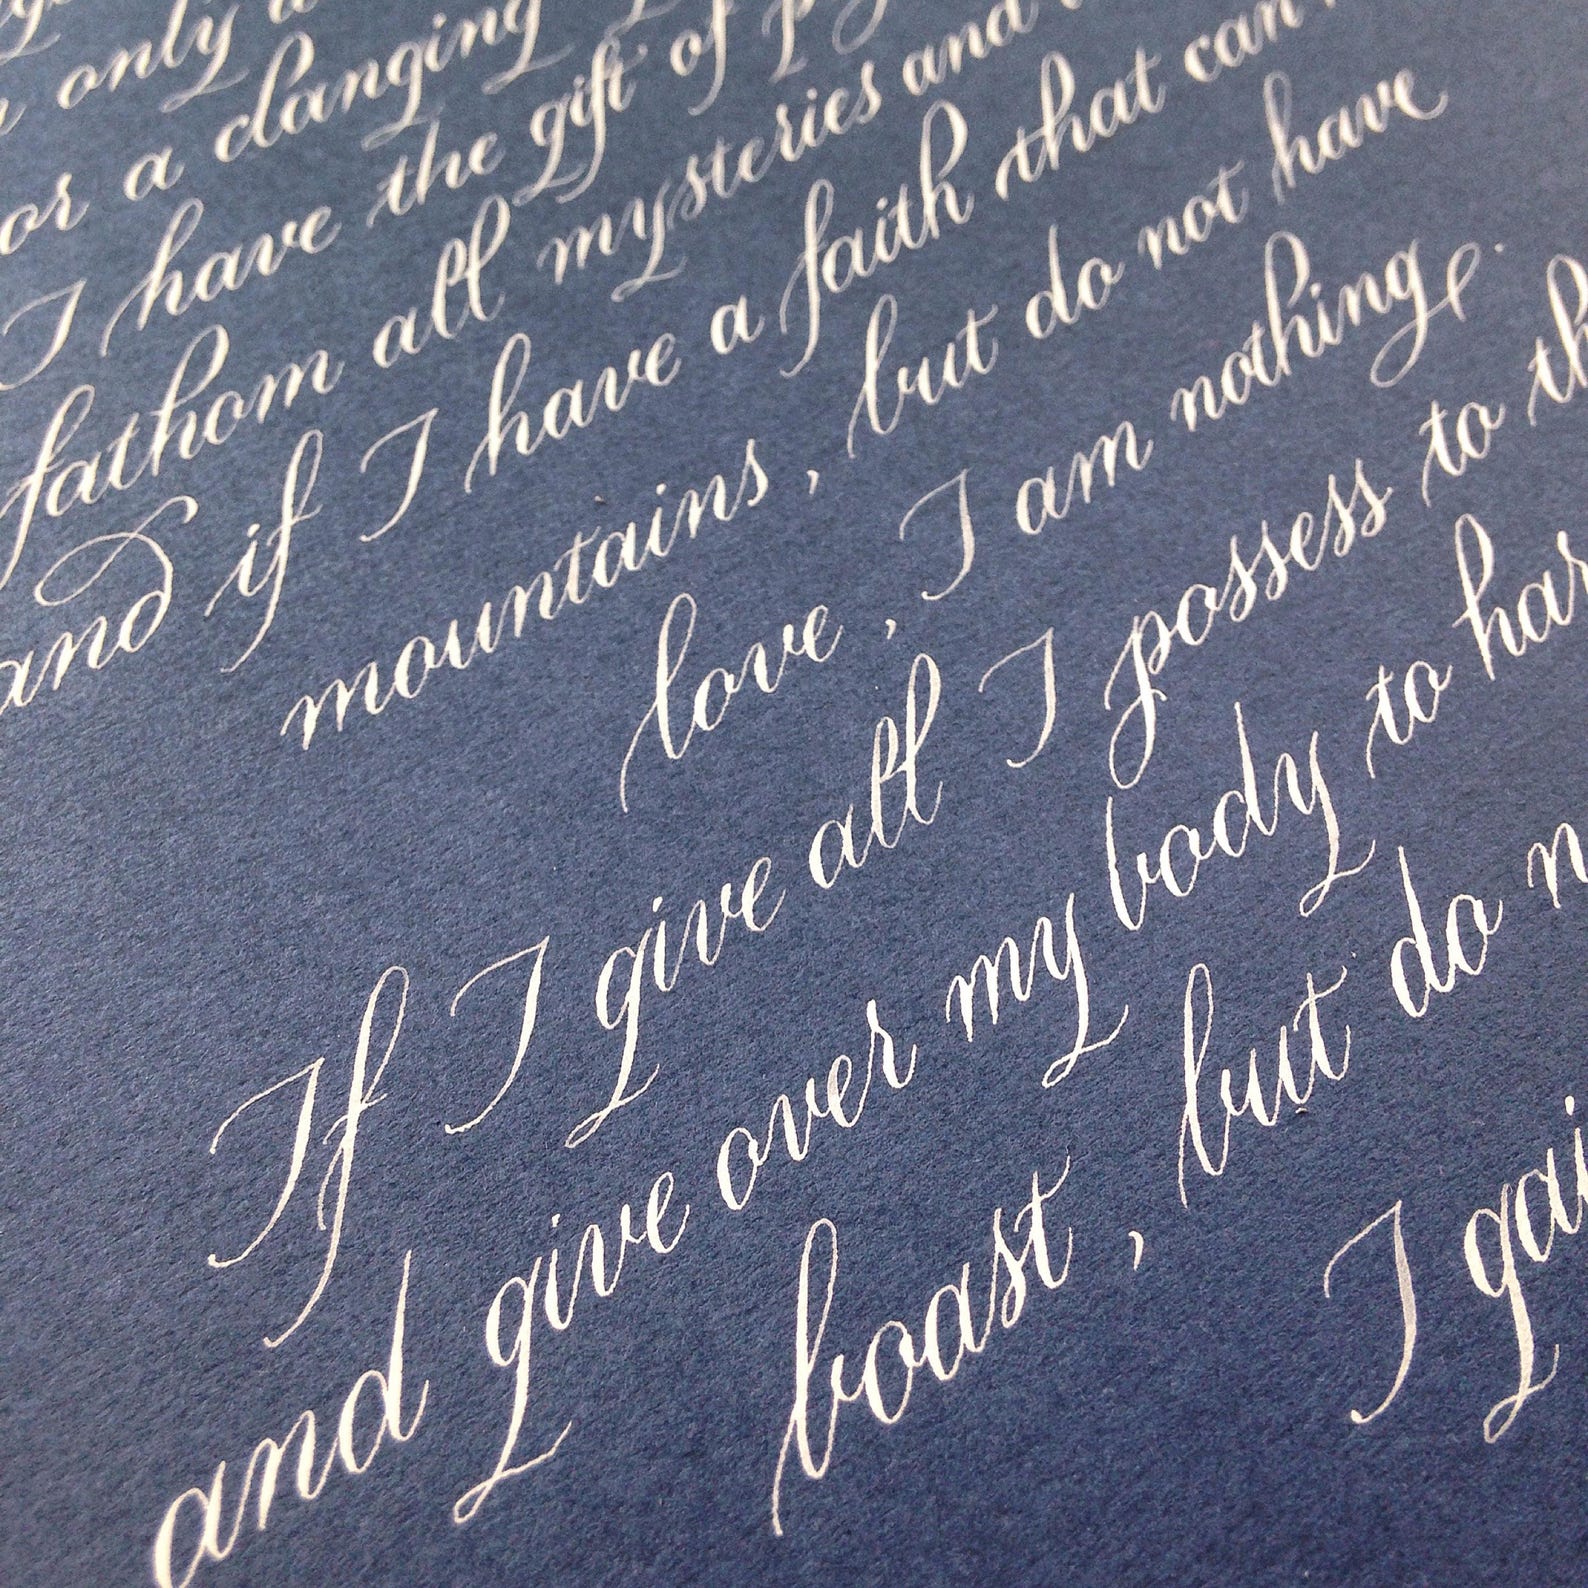 only a
or a clanging
I have the gift of
fathom all mysteries and
and if I have a faith that can
mountains, but do not have
love, I am nothing.
If I give all I possess to th
and give over my body to har
boast, but do n
I gai